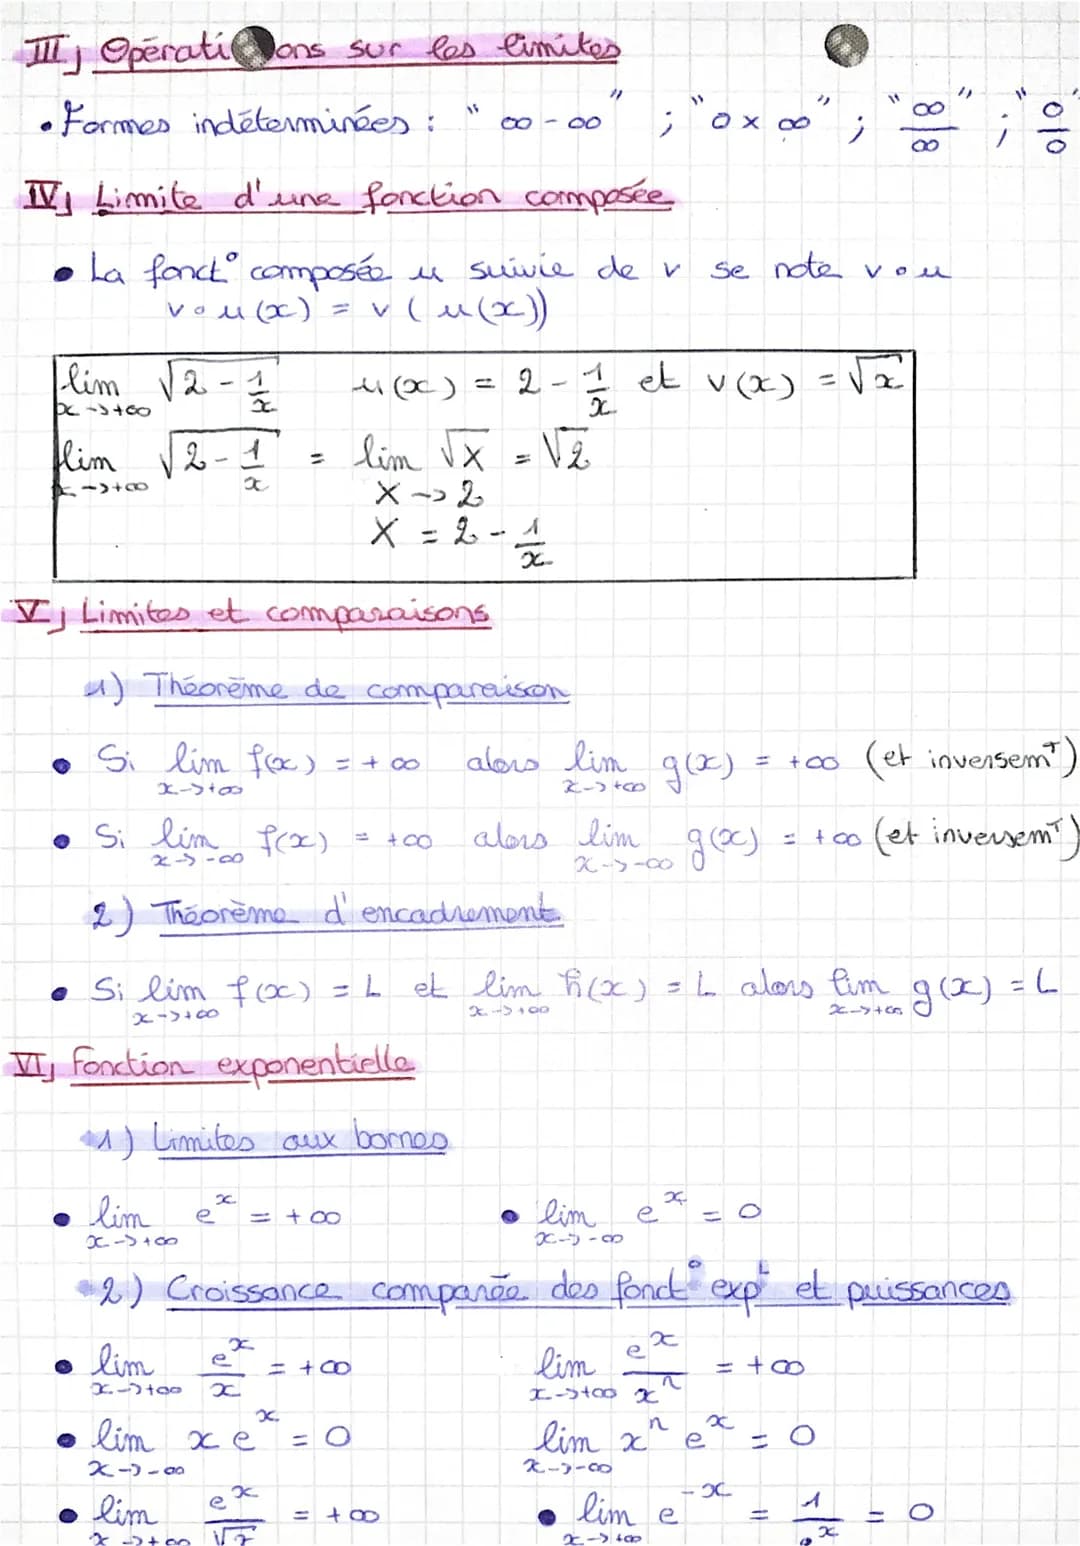 III) Opérations sur les limites
• Formes indéterminées : " ∞ - ∞ " ; " 0 × ∞ " ; " ∞/∞ " ; " 0/0 "
IV) Limite d'une fonction composée
• La fonct° composée u suivie de v se note v∘u
v∘u(x) = v(u(x))
lim x→+∞ √(2 - 1/x) u(x) = 2 - 1/x et v(x) = √x
lim x→+∞ √(2 - 1/x) = lim √X = √2
X → 2
X = 2 - 1/x
V) Limites et comparaisons
1) Théorème de comparaison
• Si lim x→+∞ f(x) = +∞ alors lim x→+∞ g(x) = +∞ (et inversemT)
• Si lim x→-∞ f(x) = +∞ alors lim x→-∞ g(x) = +∞ (et inversemT)
2) Théorème d'encadrement
• Si lim x→+∞ f(x) = L et lim x→+∞ h(x) = L alors lim x→+∞ g(x) = L
VI) Fonction exponentielle
1) Limites aux bornes
• lim x→+∞ e^x = +∞ • lim x→-∞ e^x = 0
2) Croissance comparée des fonct° expt et puissances
• lim x→+∞ e^x/x = +∞ lim x→+∞ e^x/x^n = +∞
• lim x→-∞ x e^x = 0 lim x→-∞ x^n e^x = 0
• lim x→+∞ e^x/√x = +∞ • lim x→+∞ e^-x = 1/e^x = 0